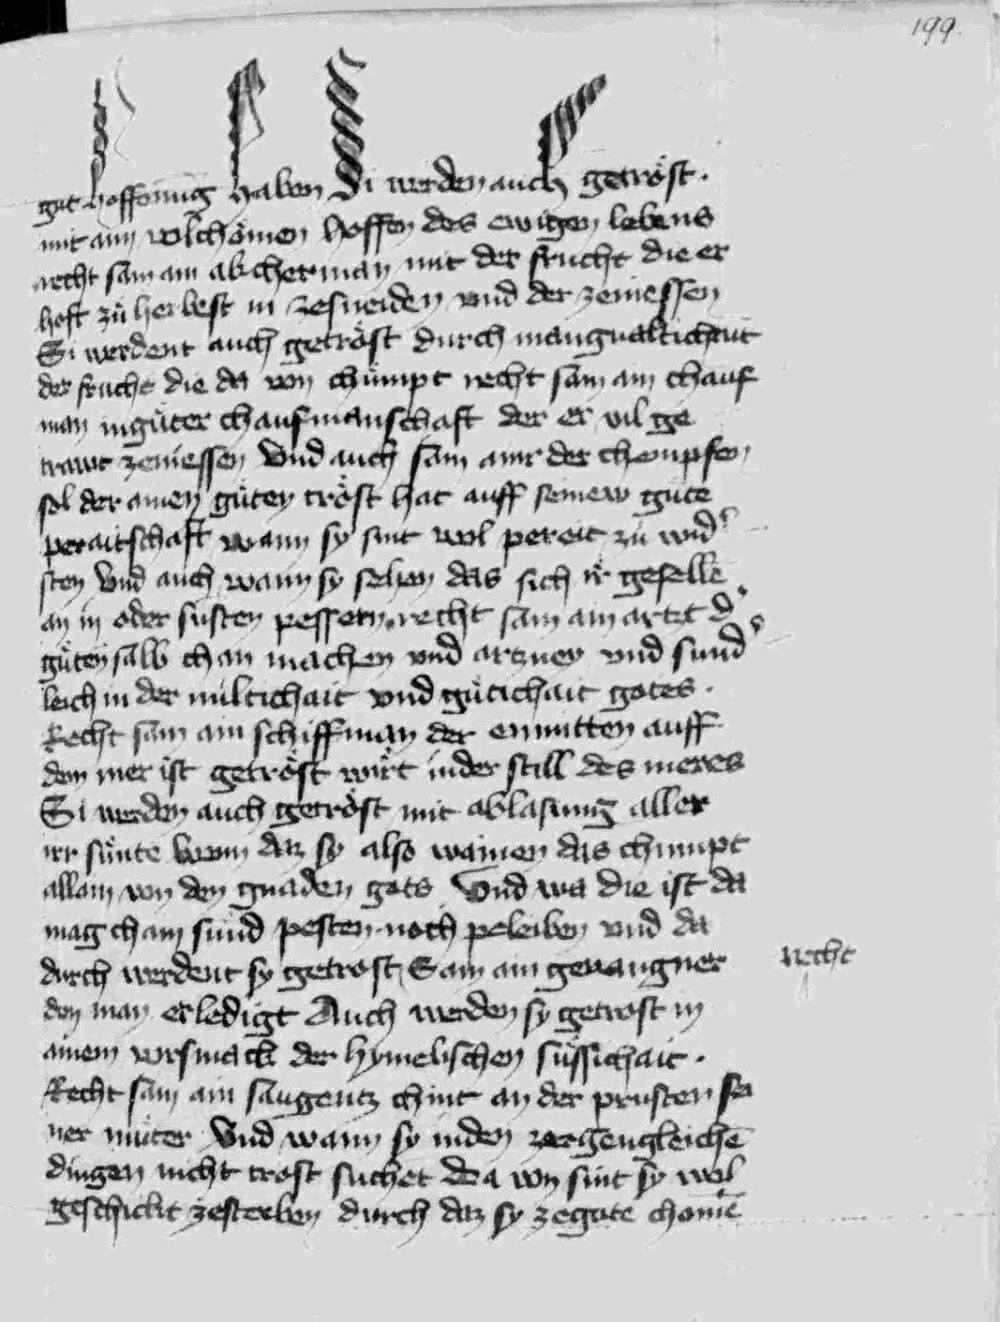 199.
gut hoffenung haben Si werden auch getröst.
mit ainn volchömen hoffen des ewigen lebens
recht sam ain akcherman mit der frucht die er
hoft zů herbest in zesneiden vnd der zeniessen
Si werdent auch getröst durch manigualtichait
der frucht die da von chümpt recht sam ain chauf
man in gůter chaufmanschaft der er vil ge
trawt zeniessen Vnd auch sam ainr der chempfen
sol der ainen gůten tröst hat auff seinew gute
peraitschaft wann sy sint wol pereit zu wid
sten Vnd auch wann sy sehen das sich ir geselle
an in oder susten pessern recht sam ain artzt d
gůten salb chan machen vnd artzney vnd sund
leich in der miltichait vnd gůtichait gotes.
Recht sam ain schiffman der enmitten auff
dem mer ist getröst wirt in der still des meres
Si werden auch getröst mit ablasung aller
irr sünte wann daz sy also wainen das chumpt
allain von den gnaden gots Vnd wa die ist da
mag chain sünd pesten noch peleiben vnd da
durch werdent sy getrost Sam ain geuangner recht
den man erledigt Auch werden sy getrost in
ainem vorsmack der hymelischen süssichait.
Recht sam ain saugentz chint an der prusten sei
ner můter Vnd wann sy in den zergengleichē
dingen nicht trost suchet da von sint sy wol
geschickt zesterben durch daz sy zegote chomē